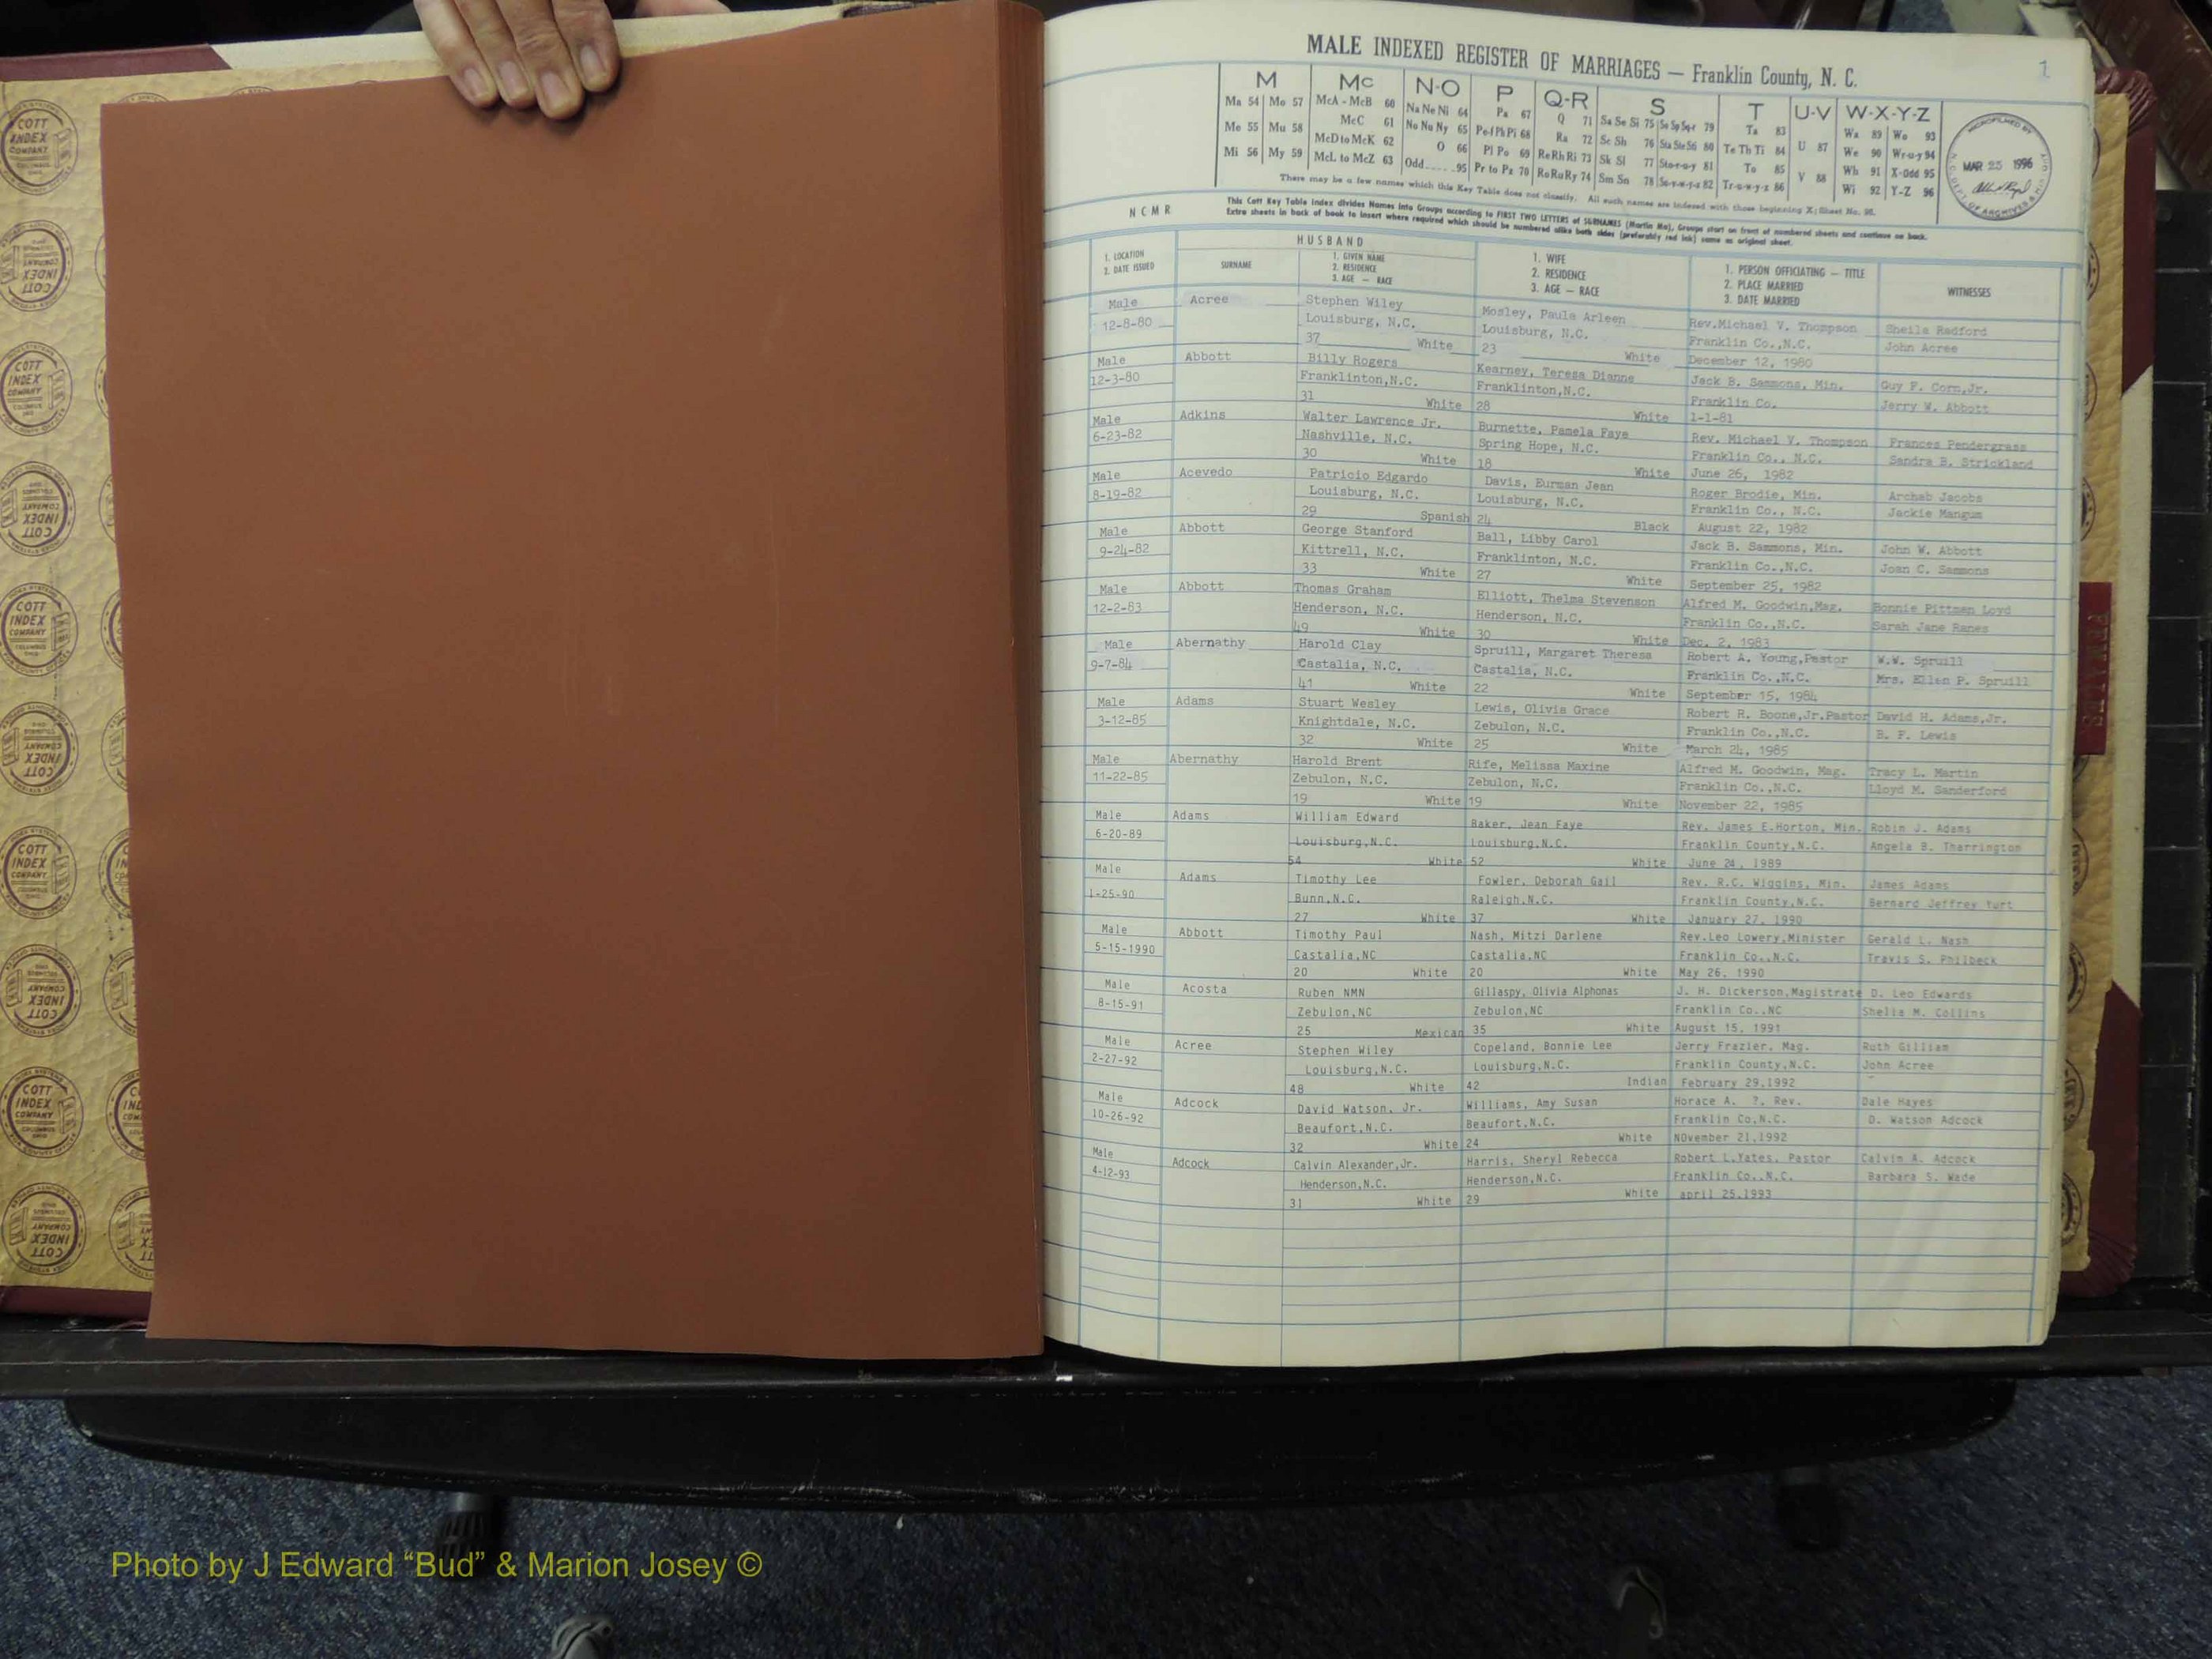 MALE INDEXED REGISTER OF MARRIAGES — Franklin County, N. C.
1
M Mc N-O P Q-R S T U-V W-X-Y-Z
Ma 54 Mo 57 McA - McB 60 Na Ne Ni 64 Pa 67 Q 71 Sa Se Si 75 79 Ta 83 Wa 89 Wo 93
Me 55 Mu 58 McC 61 No Nu Ny 65 Pe-f Ph Pi 68 Ra 72 Sc Sh 76 Sta Ste Sti 80 Te Th Ti 84 U 87 We 90 Wr-u-y 94
Mi 56 My 59 McD to McK 62 O 66 Pl Po 69 Re Rh Ri 73 Sk Sl 77 Sto-r-u-y 81 To 85 V 88 Wh 91 X-Odd 95
McL to McZ 63 Odd 95 Pr to Pz 70 Ro Ru Ry 74 Sm Sn 78 82 Tr-u-w-y-z 86 Wi 92 Y-Z 96
MICROFILMED BY
MAR 25 1996
N.C. DEPT. OF ARCHIVES &
There may be a few names which this Key Table does not classify. All such names are indexed with those beginning X; Sheet No. 95.
This Cott Key Table Index divides Names into Groups according to FIRST TWO LETTERS of SURNAMES (Martin Ma), Groups start on front of numbered sheets and continue on back.
Extra sheets in back of book to insert where required which should be numbered alike both sides (preferably red ink) same as original sheet.
NCMR
HUSBAND
1. LOCATION
2. DATE ISSUED
SURNAME
1. GIVEN NAME
2. RESIDENCE
3. AGE — RACE
1. WIFE
2. RESIDENCE
3. AGE — RACE
1. PERSON OFFICIATING — TITLE
2. PLACE MARRIED
3. DATE MARRIED
WITNESSES
Male Acree Stephen Wiley Mosley, Paula Arleen Rev.Michael V. Thompson Sheila Radford
12-8-80 Louisburg, N.C. Louisburg, N.C. Franklin Co.,N.C. John Acree
37 White 23 White December 12, 1980
Male Abbott Billy Rogers Kearney, Teresa Dianne Jack B. Sammons, Min. Guy F. Corn,Jr.
12-3-80 Franklinton,N.C. Franklinton,N.C. Franklin Co. Jerry W. Abbott
31 White 28 White 1-1-81
Male Adkins Walter Lawrence Jr. Burnette, Pamela Faye Rev. Michael V. Thompson Frances Pendergrass
6-23-82 Nashville, N.C. Spring Hope, N.C. Franklin Co., N.C. Sandra B. Strickland
30 White 18 White June 26, 1982
Male Acevedo Patricio Edgardo Davis, Eurman Jean Roger Brodie, Min. Archab Jacobs
8-19-82 Louisburg, N.C. Louisburg, N.C. Franklin Co., N.C. Jackie Mangum
29 Spanish 24 Black August 22, 1982
Male Abbott George Stanford Ball, Libby Carol Jack B. Sammons, Min. John W. Abbott
9-24-82 Kittrell, N.C. Franklinton, N.C. Franklin Co.,N.C. Joan C. Sammons
33 White 27 White September 25, 1982
Male Abbott Thomas Graham Elliott, Thelma Stevenson Alfred M. Goodwin,Mag. Bonnie Pittman Loyd
12-2-83 Henderson, N.C. Henderson, N.C. Franklin Co.,N.C. Sarah Jane Ranes
49 White 30 White Dec. 2, 1983
Male Abernathy Harold Clay Spruill, Margaret Theresa Robert A. Young,Pastor W.W. Spruill
9-7-84 Castalia, N.C. Castalia, N.C. Franklin Co.,N.C. Mrs. Ellen P. Spruill
41 White 22 White September 15, 1984
Male Adams Stuart Wesley Lewis, Olivia Grace Robert R. Boone,Jr.Pastor David H. Adams,Jr.
3-12-85 Knightdale, N.C. Zebulon, N.C. Franklin Co.,N.C. B. F. Lewis
32 White 25 White March 24, 1985
Male Abernathy Harold Brent Rife, Melissa Maxine Alfred M. Goodwin, Mag. Tracy L. Martin
11-22-85 Zebulon, N.C. Zebulon, N.C. Franklin Co.,N.C. Lloyd M. Sanderford
19 White 19 White November 22, 1985
Male Adams William Edward Baker, Jean Faye Rev. James E.Horton, Min. Robin J. Adams
6-20-89 Louisburg,N.C. Louisburg,N.C. Franklin County,N.C. Angela B. Tharrington
54 White 52 White June 24, 1989
Male Adams Timothy Lee Fowler, Deborah Gail Rev. R.C. Wiggins, Min. James Adams
1-25-90 Bunn,N.C. Raleigh,N.C. Franklin County,N.C. Bernard Jeffrey Yurt
27 White 37 White January 27, 1990
Male Abbott Timothy Paul Nash, Mitzi Darlene Rev.Leo Lowery,Minister Gerald L. Nash
5-15-1990 Castalia,NC Castalia,NC Franklin Co.,N.C. Travis S. Philbeck
20 White 20 White May 26, 1990
Male Acosta Ruben NMN Gillaspy, Olivia Alphonas J. H. Dickerson,Magistrate D. Leo Edwards
8-15-91 Zebulon,NC Zebulon,NC Franklin Co.,NC Shelia M. Collins
25 Mexican 35 White August 15, 1991
Male Acree Stephen Wiley Copeland, Bonnie Lee Jerry Frazier, Mag. Ruth Gilliam
2-27-92 Louisburg,N.C. Louisburg,N.C. Franklin County,N.C. John Acree
48 White 42 Indian February 29,1992
Male Adcock David Watson, Jr. Williams, Amy Susan Horace A. ?. Rev. Dale Hayes
10-26-92 Beaufort,N.C. Beaufort,N.C. Franklin Co,N.C. D. Watson Adcock
32 White 24 White NOvember 21,1992
Male Adcock Calvin Alexander,Jr. Harris, Sheryl Rebecca Robert L.Yates, Pastor Calvin A. Adcock
4-12-93 Henderson,N.C. Henderson,N.C. Franklin Co.,N.C. Barbara S. Wade
31 White 29 White april 25,1993
FEMALES
COTT INDEX COMPANY
Photo by J Edward “Bud” & Marion Josey ©